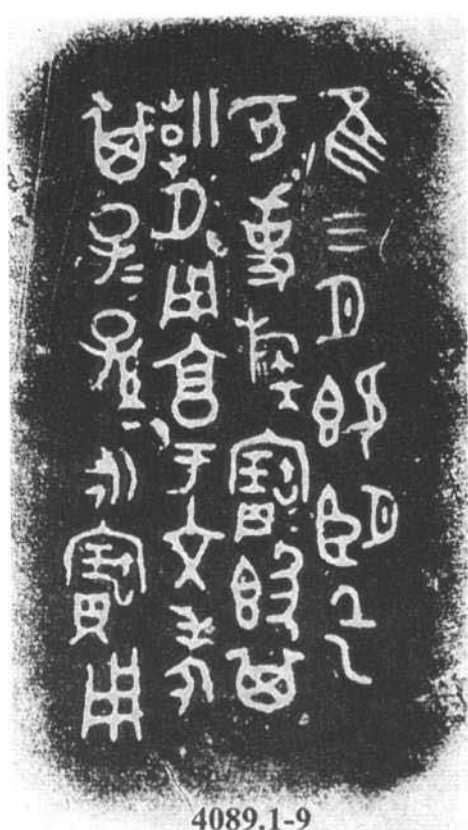 隹三月既朢乙
亥事族乍寶𣪘其
朝夕用享于文考
其子＝孫＝永寶用
4089.1-9